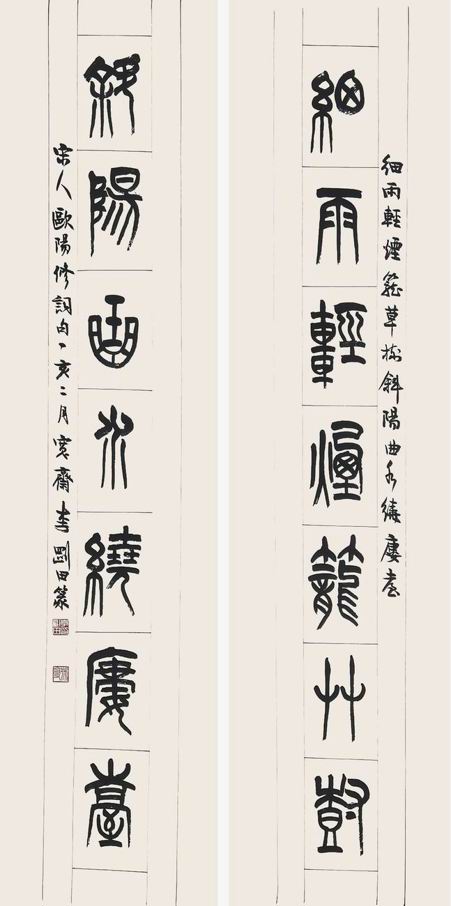 細雨輕煙籠草樹斜陽曲水繞廔臺
細雨輕煙籠艸樹
斜陽曲水繞廔臺
宋人歐陽修詞句丁亥二月寬齋李剛田篆